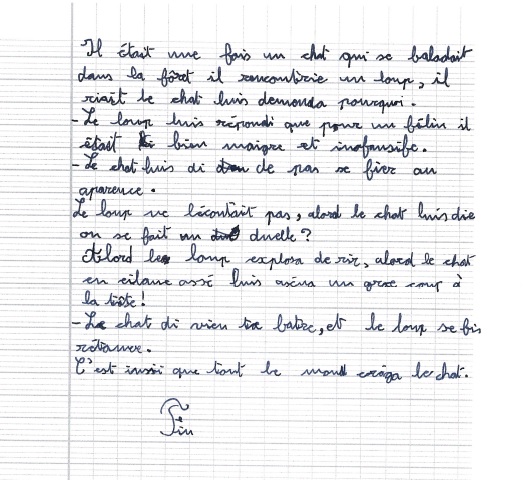 Il était une fois un chat qui se baladait
dans la fôrèt il rencontrie un loup, il
riait le chat luis demanda pourquoi.
- Le loup luis répondi que pour un félin il
était bien maigre et inofansife.
- Le chat luis di de pas se fier au
aparence.
Le loup ne l'écoutait pas, alord le chat luis die
on se fait un duelle ?
Alord le loup explosa de rir, alord le chat
en assé luis aséna un gros coup à
la tiête !
- Le chat di vien te batre, et le loup se fis
rétamer.
C'est insi que tout le mond le chat.
Fin